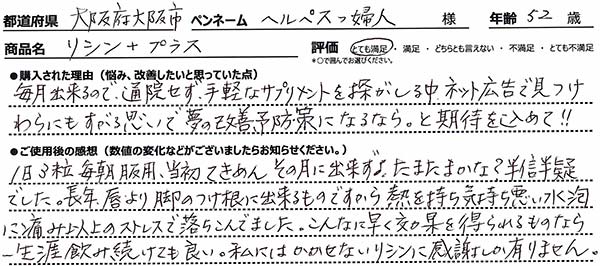 都道府県 大阪府大阪市 ペンネーム ヘルペスっ婦人 様 年齢 52 歳
商品名 リシン+プラス 評価 とても満足・満足・どちらとも言えない・不満足・とても不満足
*○で囲んでお選びください。
●購入された理由(悩み、改善したいと思っていた点)
毎月出来るので、通院せず、手軽なサプリメントを探がしる中、ネット広告で見つけ
わらにもすがる思いで夢の改善、予防策になるなら。と期待を込めて!!
●ご使用後の感想(数値の変化などがございましたらお知らせください。)
1日3粒 毎朝服用、当初てきめん その月に出来ずよ、たまたまかなで半信半疑
でした。長年、唇より脚のつけ根に出来るものですから熱を持ち気持ち悪い水泡
に痛み以上のストレスで落ちこんでました。こんなに早く効果を得られるものなら
一生涯飲み続けても良い。私にはかかせないリシンに感謝しか有りません。